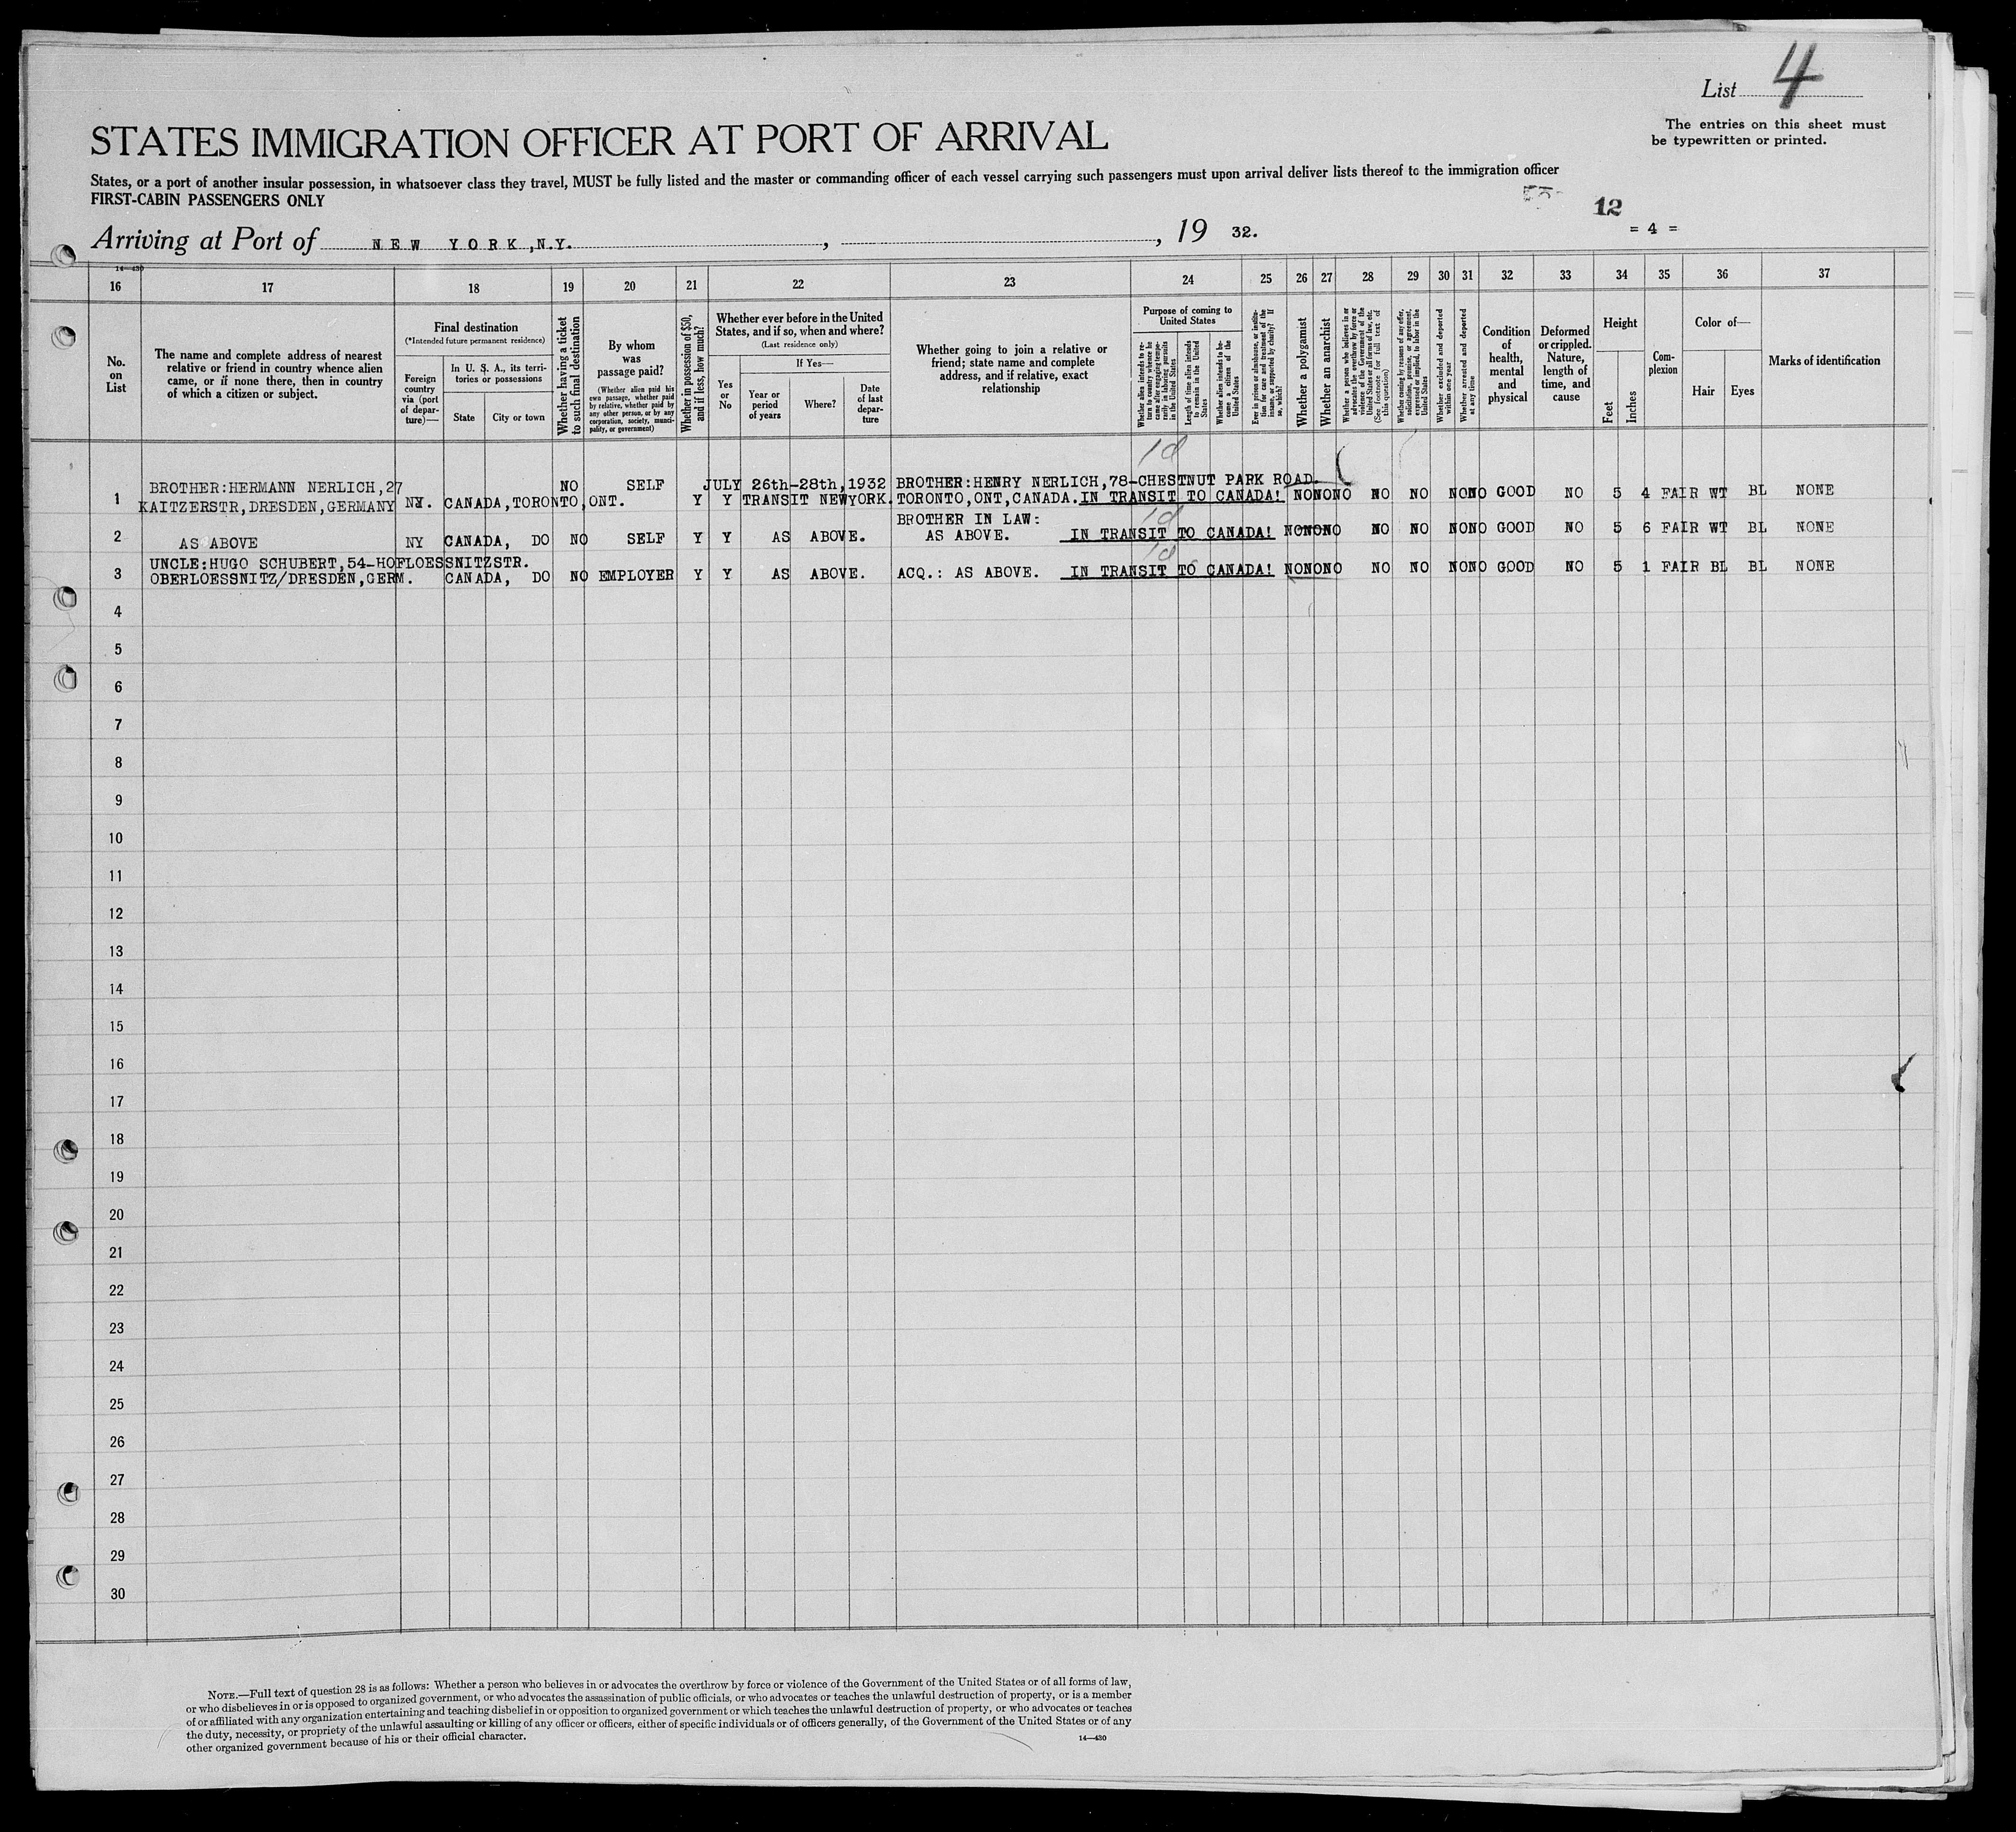 List 4
The entries on this sheet must
be typewritten or printed.
STATES IMMIGRATION OFFICER AT PORT OF ARRIVAL
States, or a port of another insular possession, in whatsoever class they travel, MUST be fully listed and the master or commanding officer of each vessel carrying such passengers must upon arrival deliver lists thereof to the immigration officer
FIRST-CABIN PASSENGERS ONLY
12
Arriving at Port of NEW YORK, N.Y. , , 19 32.
= 4 =
14—430
16 17 18 19 20 21 22 23 24 25 26 27 28 29 30 31 32 33 34 35 36 37
No.
on
List
The name and complete address of nearest
relative or friend in country whence alien
came, or if none there, then in country
of which a citizen or subject.
Final destination
(*Intended future permanent residence)
Foreign
country
via (port
of depar-
ture)—
In U. S. A., its terri-
tories or possessions
State
City or town
Whether having a ticket
to such final destination
By whom
was
passage paid?
(Whether alien paid his
own passage, whether paid
by relative, whether paid by
any other person, or by any
corporation, society, munci-
pality, or government)
Whether in possession of $50,
and if less, how much?
Whether ever before in the United
States, and if so, when and where?
(Last residence only)
Yes
or
No
If Yes—
Year or
period
of years
Where?
Date
of last
depar-
ture
Whether going to join a relative or
friend; state name and complete
address, and if relative, exact
relationship
Purpose of coming to
United States
Whether alien intends to re-
turn to country whence he
came after engaging tempo-
rarily in laboring pursuits
in the United States
Length of time alien intends
to remain in the United
States
Whether alien intends to be-
come a citizen of the
United States
Ever in prison or almshouse, or institu-
tion for care and treatment of the
insane, or supported by charity? If
so, which?
Whether a polygamist
Whether an anarchist
Whether a person who believes in or
advocates the overthrow by force or
violence of the Government of the
United States or all forms of law, etc.
(See footnote for full text of
this question)
Whether coming by reasons of any offer,
solicitation, promise, or agreement,
expressed or implied, to labor in the
United States
Whether excluded and deported
within one year
Whether arrested and deported
at any time
Condition
of
health,
mental
and
physical
Deformed
or crippled.
Nature,
length of
time, and
cause
Height
Feet
Inches
Com-
plexion
Color of—
Hair
Eyes
Marks of identification
1d
BROTHER:HERMANN NERLICH,27 NO SELF JULY 26th-28th,1932 BROTHER:HENRY NERLICH,78-CHESTNUT PARK ROAD.
1 KAITZERSTR,DRESDEN,GERMANY NY. CANADA,TORONTO,ONT. Y Y TRANSIT NEWYORK. TORONTO,ONT,CANADA. IN TRANSIT TO CANADA! NO NO NO NO NO NO NO GOOD NO 5 4 FAIR WT BL NONE
BROTHER IN LAW: 1d
2 AS ABOVE NY CANADA, DO NO SELF Y Y AS ABOVE. AS ABOVE. IN TRANSIT TO CANADA! NO NO NO NO NO NO NO GOOD NO 5 6 FAIR WT BL NONE
UNCLE:HUGO SCHUBERT,54-HOFLOESSNITZSTR. 1d
3 OBERLOESSNITZ/DRESDEN,GERM. CANADA, DO NO EMPLOYER Y Y AS ABOVE. ACQ.: AS ABOVE. IN TRANSIT TO CANADA! NO NO NO NO NO NO NO GOOD NO 5 1 FAIR BL BL NONE
4
5
6
7
8
9
10
11
12
13
14
15
16
17
18
19
20
21
22
23
24
25
26
27
28
29
30
NOTE.—Full text of question 28 is as follows: Whether a person who believes in or advocates the overthrow by force or violence of the Government of the United States or of all forms of law,
or who disbelieves in or is opposed to organized government, or who advocates the assassination of public officials, or who advocates or teaches the unlawful destruction of property, or is a member
of or affiliated with any organization entertaining and teaching disbelief in or opposition to organized government or which teaches the unlawful destruction of property, or who advocates or teaches
the duty, necessity, or propriety of the unlawful assaulting or killing of any officer or officers, either of specific individuals or of officers generally, of the Government of the United States or of any
other organized government because of his or their official character.
14—430